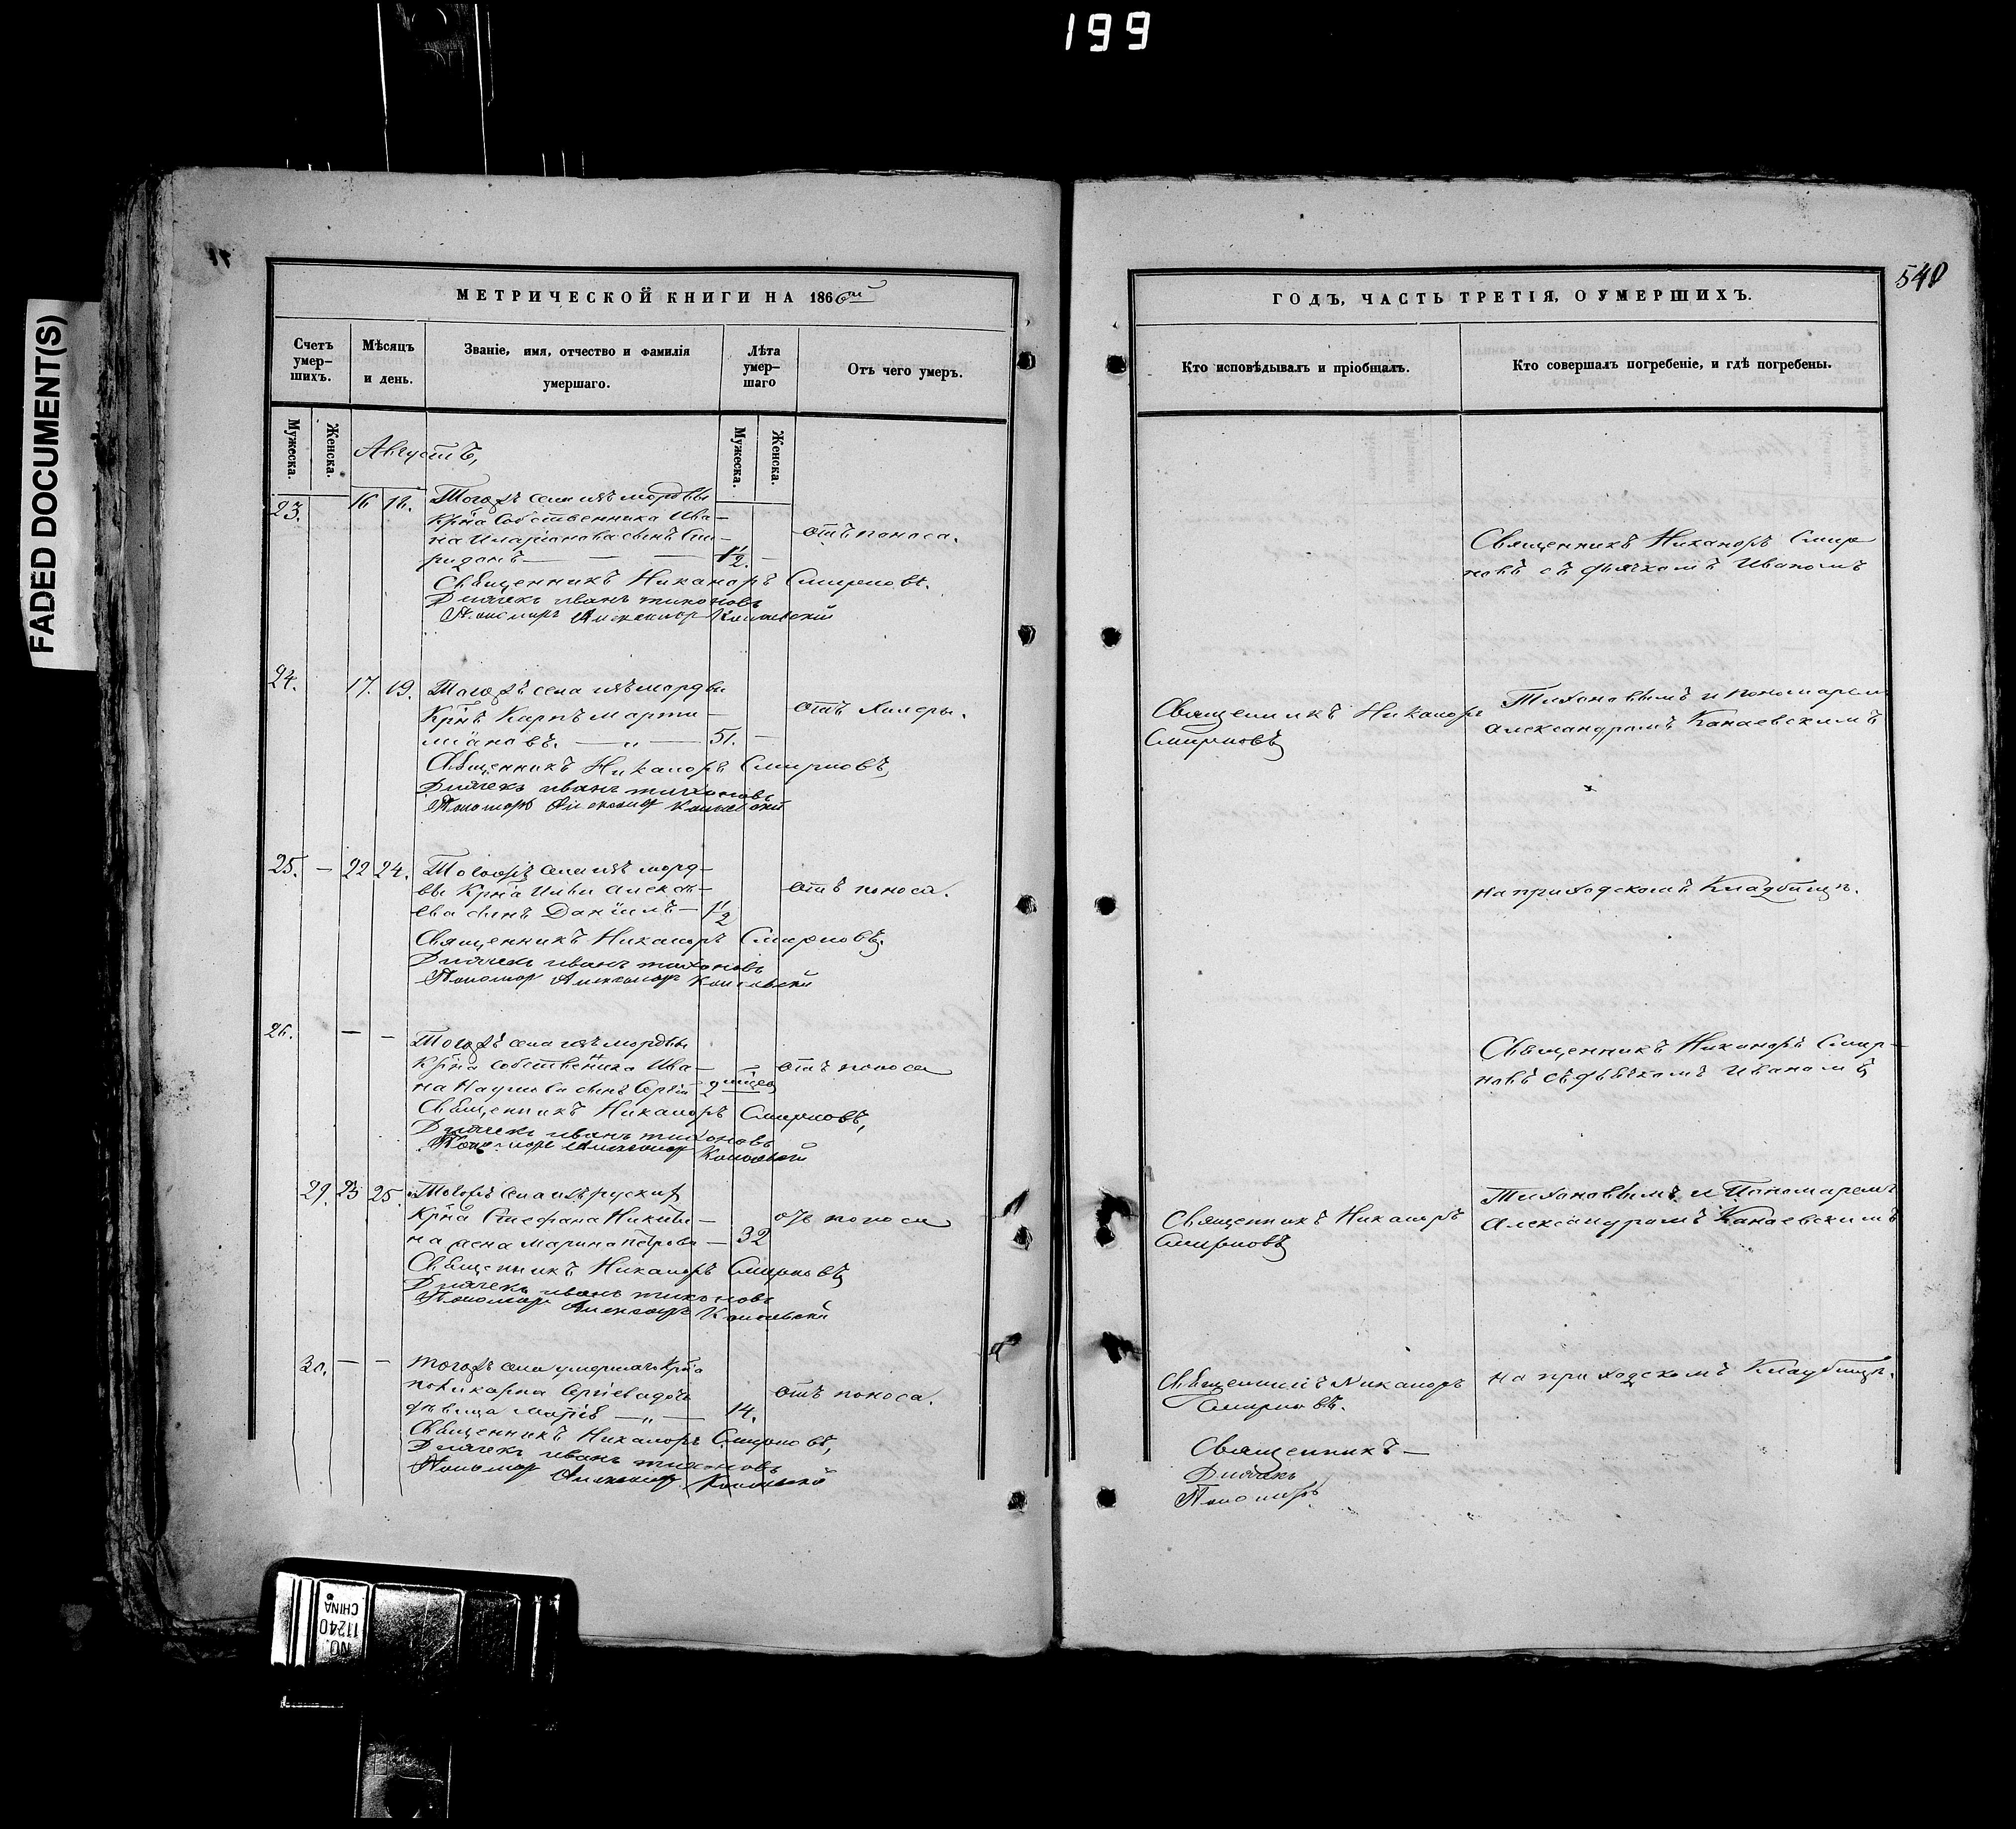 199
FADED DOCUMENT(S)
540
МЕТРИЧЕСКОЙ КНИГИ НА 1866ой
Счетъ умер-
шихъ.
Мѣсяцъ
и день.
Званіе, имя, отчество и фамилія
умершаго.
Лѣта
умер-
шаго
Отъ чего умеръ.
Мужеска.
Женска.
Августъ,
Мужеска.
Женска.
23. 16 18. Тогожъ села изъ мордвы
Крн͠а Собственника Ива-
на Иларіонова сынъ Спи-
ридонъ — — 1/2. —
отъ поноса.
Священникъ Никаноръ Смирновъ.
Дьячекъ иванъ тихоновъ
Пономарь Александръ Канаевскій
24. 17. 19. Тогожъ села изъ мордвы
Крн͠ъ Карпъ Марти-
міановъ. — „ — 51. —
отъ Холеры.
Священникъ Никаноръ Смирновъ,
Дьячекъ иванъ тихоновъ
Пономарь Александръ Канаевскій
25. — 22 24. Тогожъ села изъ морд-
вы Крн͠а Ильи Алексѣ-
ева сынъ Даніилъ — 1/2
отъ поноса.
Священникъ Никаноръ Смирновъ.
Дьячекъ иванъ тихоновъ
Пономарь Александръ Канаевскій
26. — — Тогожъ села изъ мордвы
Крн͠а собственника Ива-
на Наумова сынъ Сергій —
отъ поноса
Священникъ Никаноръ Смирновъ,
Дьячекъ иванъ тихоновъ
Пономарь Александръ Канаевскій
29. 23 25. Тогожъ села изъ рускихъ
Крн͠а Стефана Никити-
на жена Марина Петрова — 32
отъ поноса
Священникъ Никаноръ Смирновъ
Дьячекъ иванъ тихоновъ
Пономарь Александръ Канаевскій
30. — — тогожъ села умершаго Крн͠а
Поликарпа Сергіева дочь
дѣвица Марія — „ — 14.
отъ поноса.
Священникъ Никаноръ Смирновъ,
Дьячекъ иванъ тихоновъ
Пономарь Александръ Канаевскій
ГОДЪ, ЧАСТЬ ТРЕТІЯ, О УМЕРШИХЪ.
Кто исповѣдывалъ и пріобщалъ.
Кто совершалъ погребеніе, и гдѣ погребены.
Священникъ Никаноръ Смир
новъ съ дьячкомъ Иваномъ
Священникъ Никаноръ
Смирновъ
Тихоновымъ и пономаремъ
Александромъ Канаевскимъ
на приходскомъ Кладбищѣ.
Священникъ Никаноръ Смир-
новъ съ дьячкомъ Иваномъ
Священникъ Никаноръ
Смирновъ
Тихоновымъ и Пономаремъ
Александромъ Канаевскимъ
Священникъ Никаноръ
Смирновъ.
на приходскомъ Кладбищѣ.
Священникъ —
Дьячекъ
Пономарь
NO.
11240
CHINA